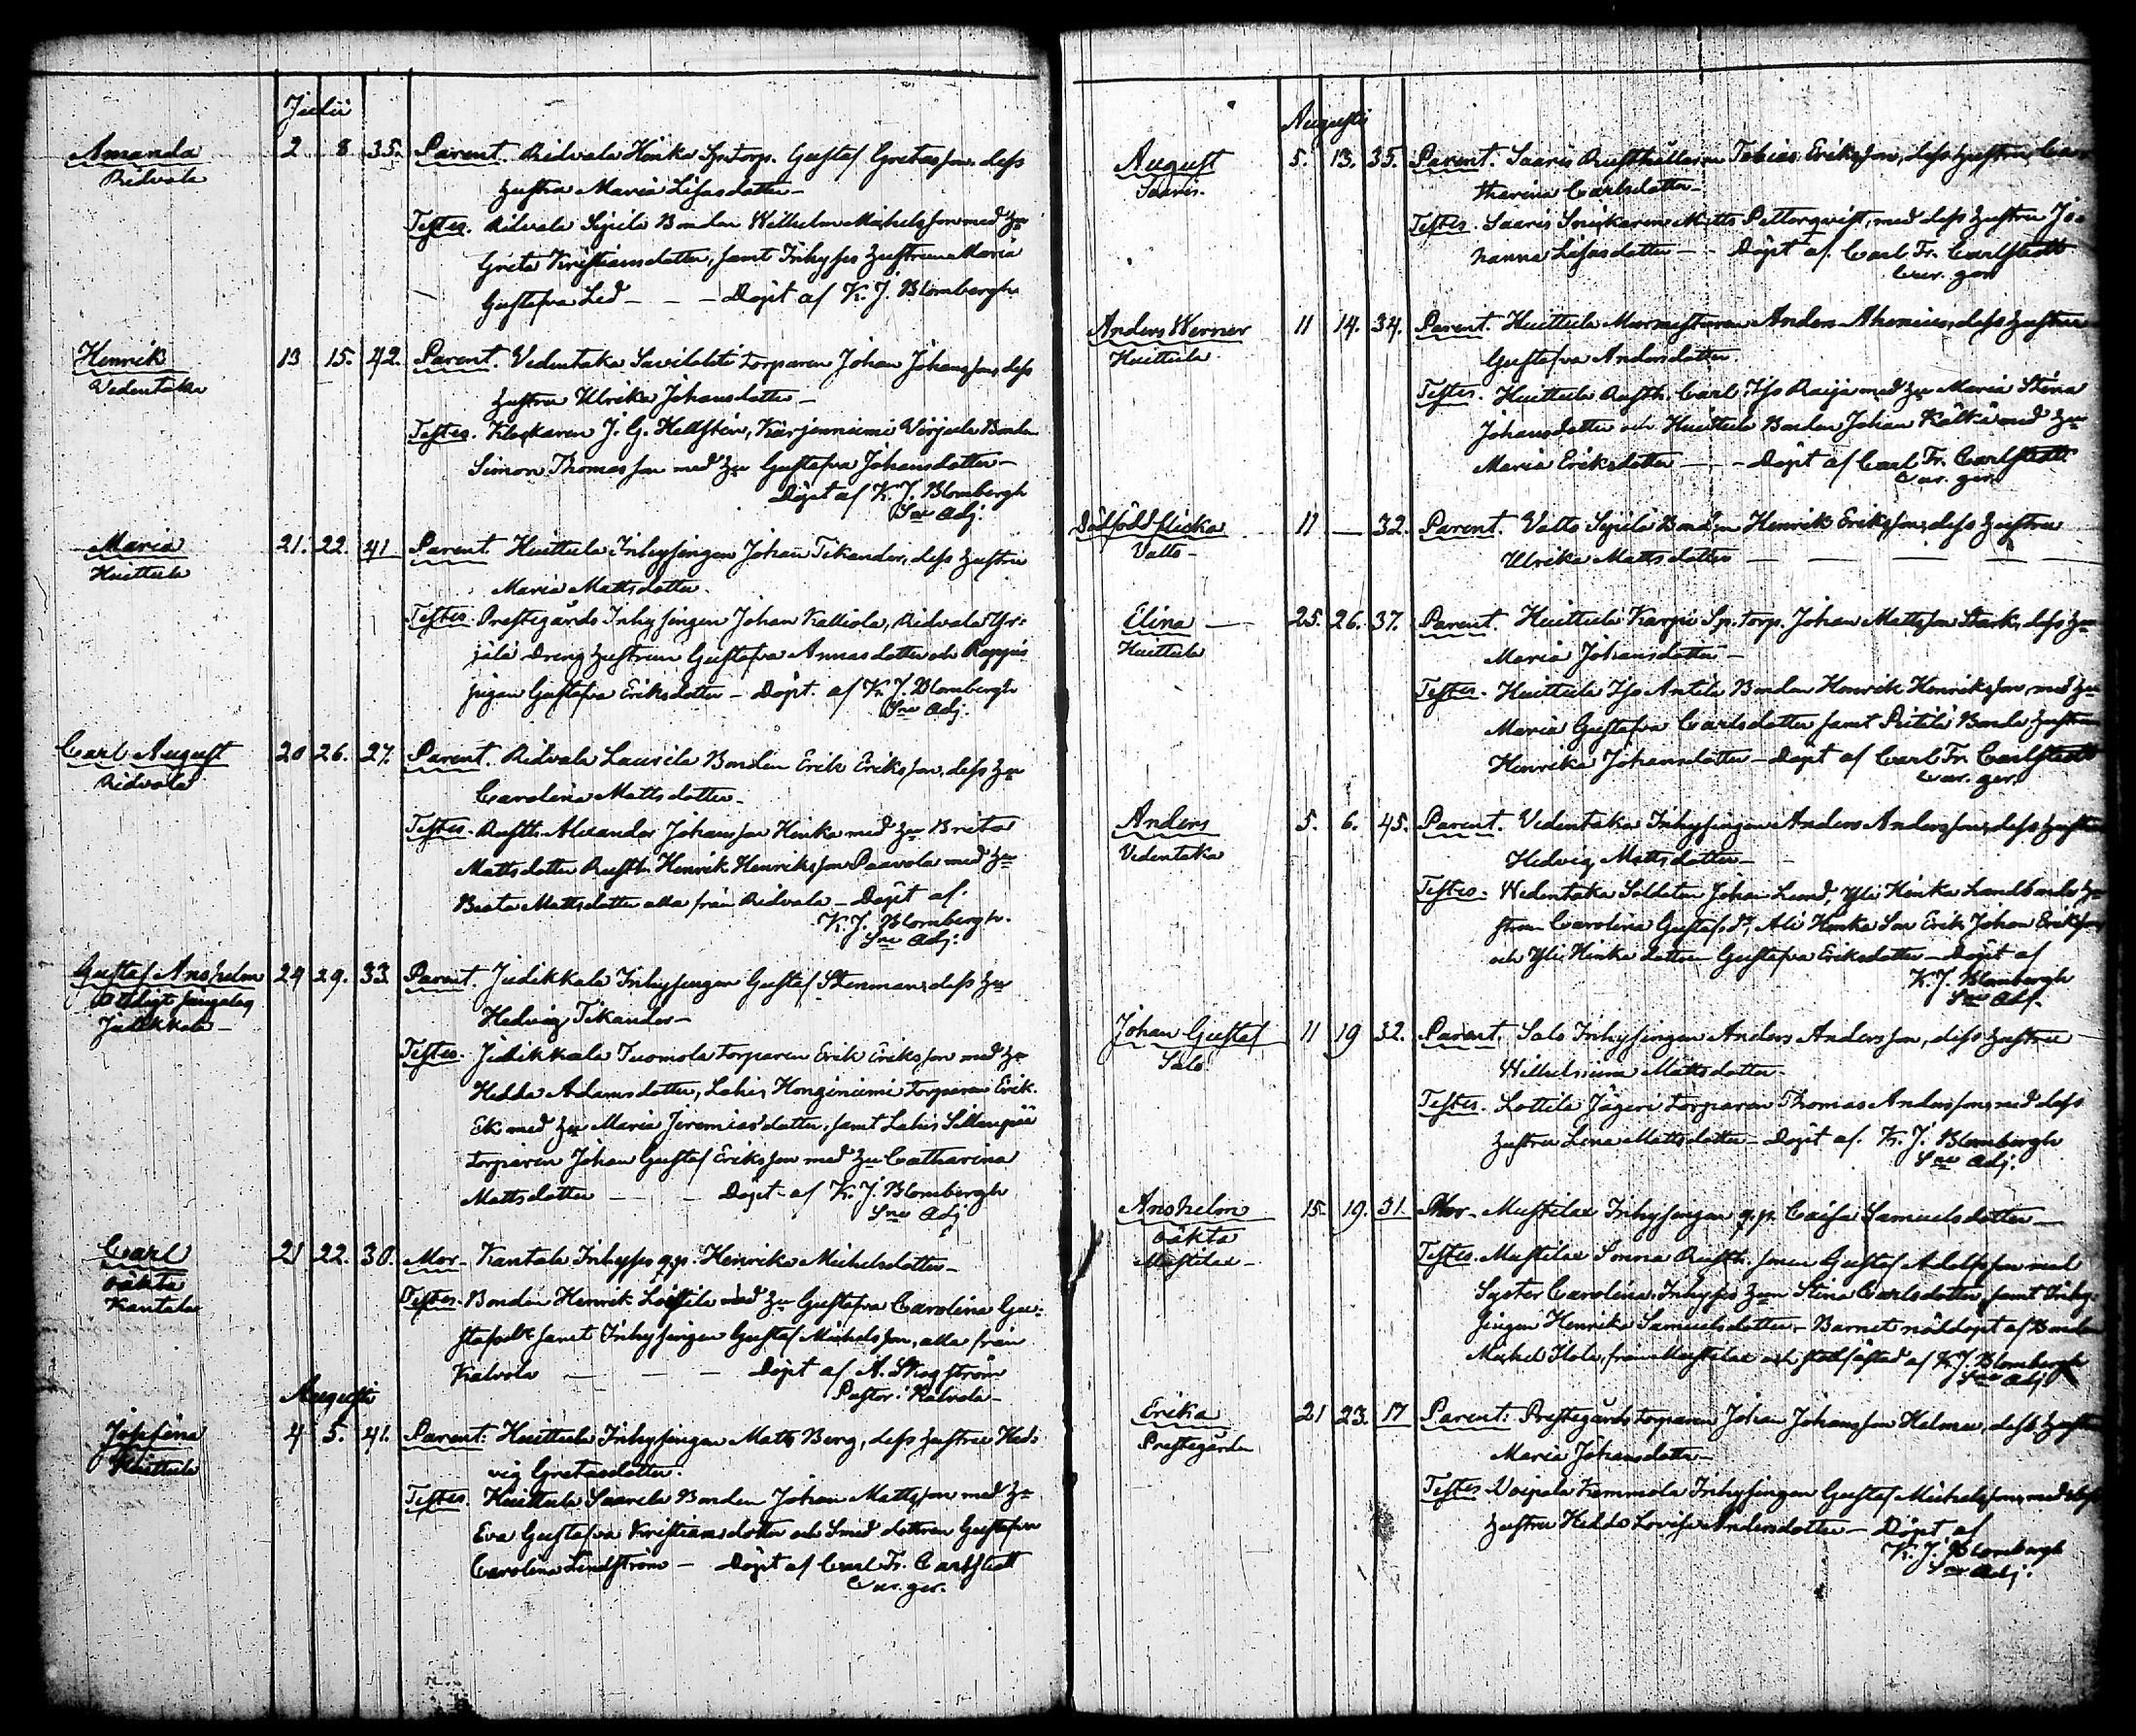 Julii
Amanda 2 8 35. Parent. Ridvala Hinka Sp.torp. Gustaf Gretasson, dess
Ridvala hustru Maria Lisasdotter –
Testes. Ridvala Sipilä Bonden Wilhelm Michelsson med hu
Greta Kristiansdotter, samt Inhyses hustrun Maria
Gustafva Lid – – – Döpt af K. J. Blombergh
Henrik 13 15. 42. Parent. Vedentaka Savilahti torparen Johan Johansson, dess
Vedentaka hustru Ulrika Johansdotter –
Testes. Klockaren J. G. Hellstén, Kärjenniemi Bonden
Simon Thomasson med hu Gustafva Johansdotter –
Döpt af K. J. Blombergh
Sne Adj.
Maria 21. 22. 41 Parent. Huittula Inhysingen Johan Tikander, dess hustru
Huittula Maria Mattsdotter.
Testes. Prestegårds Inhysingen Johan Kalliola, Ridvala Yr-
jälä dreng hustrun Gustafva Annasdotter och
pigan Gustafva Eriksdotter – Döpt. af K. J. Blombergh
Sne Adj.
Carl August 20 26. 27. Parent. Ridvala Laurila Bonden Erik Eriksson, dess hu
Ridvala Carolina Mattsdotter –
Testes. Rusth. Alexander Johansson Hinka med hu Brita
Mattsdotter Rusth. Henrik Henriksson Paavola med hu
Beata Mattsdotter alla från Ridvala – Döpt af.
K. J. Blombergh.
Sne Adj.
Gustaf Anshelm 24 29. 33. Parent. Judikkala Inhysingen Gustaf Stenman, dess hu
Judikkala – Hedvig Tikander –
Testes. Judikkala Tuomola torparen Erik Eriksson med hu
Hedda Adamsdotter, Lahis Honginiemi torparen Erik
Ek med hu Maria Jeremiasdotter, samt Lahis Sillanpää
torparen Johan Gustaf Eriksson med hu Catharina
Mattsdotter – – Döpt af K. J. Blombergh
Sne Adj
Carl 21 22. 30. Mor – Kantala Inhyses q.p. Henrika Michelsdotter –
oäkta Testes. Bonden Henrik med hu Gustafva Carolina Gu-
Kantala stafsdr samt Inhysingen Gustaf Michelsson, alla från
Kalvola – – – Döpt af A. Skogström
Pastor i Kalvola –
Augusti
Josefina 4 5. 41. Parent. Huittula Inhysingen Matts Berg, dess hustru Hed-
Huittula vig Gretasdotter.
Testes. Huittula Saarela Bonden Johan Mattsson med hu
Eva Gustafva Kristiansdotter och Smed dottren Gustafva
Carolina Lindström – Döpt af Carl Fr. Carlstedt
Cur. ger.
Augusti
August 5. 13. 35. Parent. Saaris Rusthållaren Tobias Eriksson, dess hustru Ca-
Saaris. tharina Carlsdotter –
Testes. Saaris Snickaren Matts Petterqvist, med dess hustru Jo-
hanna Lisasdotter – – Döpt af. Carl Fr. Carlstedt
Cur. ger
Anders Werner 11 14. 34. Parent. Huittula Murmästaren Anders Ahonius, dess hustru
Huittula Gustafva Andersdotter.
Testes. Huittula Rusth. Carl Iso Raija med hu Maria Stina
Johansdotter och Huittula Bonden Johan Kälkä med hu
Maria Eriksdotter – – Döpt af Carl Fr. Carlstedt
Cur. ger.
Dödfödd flicka 11 – 32. Parent. Valto Sipilä Bonden Henrik Eriksson, dess hustru
Valto – Ulrika Mattsdotter – – – –
Elina – 25. 26. 37. Parent. Huittula Karpi Sp. torp. Johan Mattsson Stark, dess hu
Huittula Maria Johansdotter –
Testes. Huittula Iso Antila Bonden Henrik Henriksson, med hu
Maria Gustafva Carlsdotter samt Pietilä Bonde hustrun
Henrika Johansdotter – Döpt af Carl Fr. Carlstedt
Cur. ger.
Anders 5. 6. 45. Parent. Vedentaka Inhysingen Anders Andersson, dess hustru
Vedentaka Hedvig Mattsdotter –
Testes. Wedentaka Soldaten Johan Lund, Yli Hinka Landbonde hu-
strun Carolina Gustafsdr, Ali Hinka Son Erik Johan Eriksson
och Yli Hinka dottren Gustafva Eriksdotter – Döpt af
K. J. Blombergh
Sne Adj.
Johan Gustaf 11 19 32. Parent. Salo Inhysingen Anders Andersson, dess hustru
Salo Wilhelmina Mattsdotter.
Testes. Lottila Jägeri torparen Thomas Andersson, med dess
hustru Lena Mattsdotter – Döpt af. K. J. Blombergh
Sne Adj.
Anshelm 15. 19. 31. Mor – Mustila Inhysingen q.p. Caisa Samuelsdotter –
oäkta Testes. Mustila Rusth. sonen Gustaf Adolfsson med
Mustila – Syster Carolina, Inhyses hun Stina Carlsdotter, samt Inhy-
singen Henrika Samuelsdotter – Barnet nöddöpt af Bonden
Michel från Mustila och stadfästad af K. J. Blombergh
Sne Adj.
Erika 21 23. 17 Parent: Prestegårds torparen Johan Johansson Helmu, dess hustru
Prestegården Maria Johansdotter –
Testes. Voipala Kemmola Inhysingen Gustaf Michelsson, med dess
hustru Hedda Lovisa Andersdotter – Döpt af
K. J. Blombergh
Sne Adj.